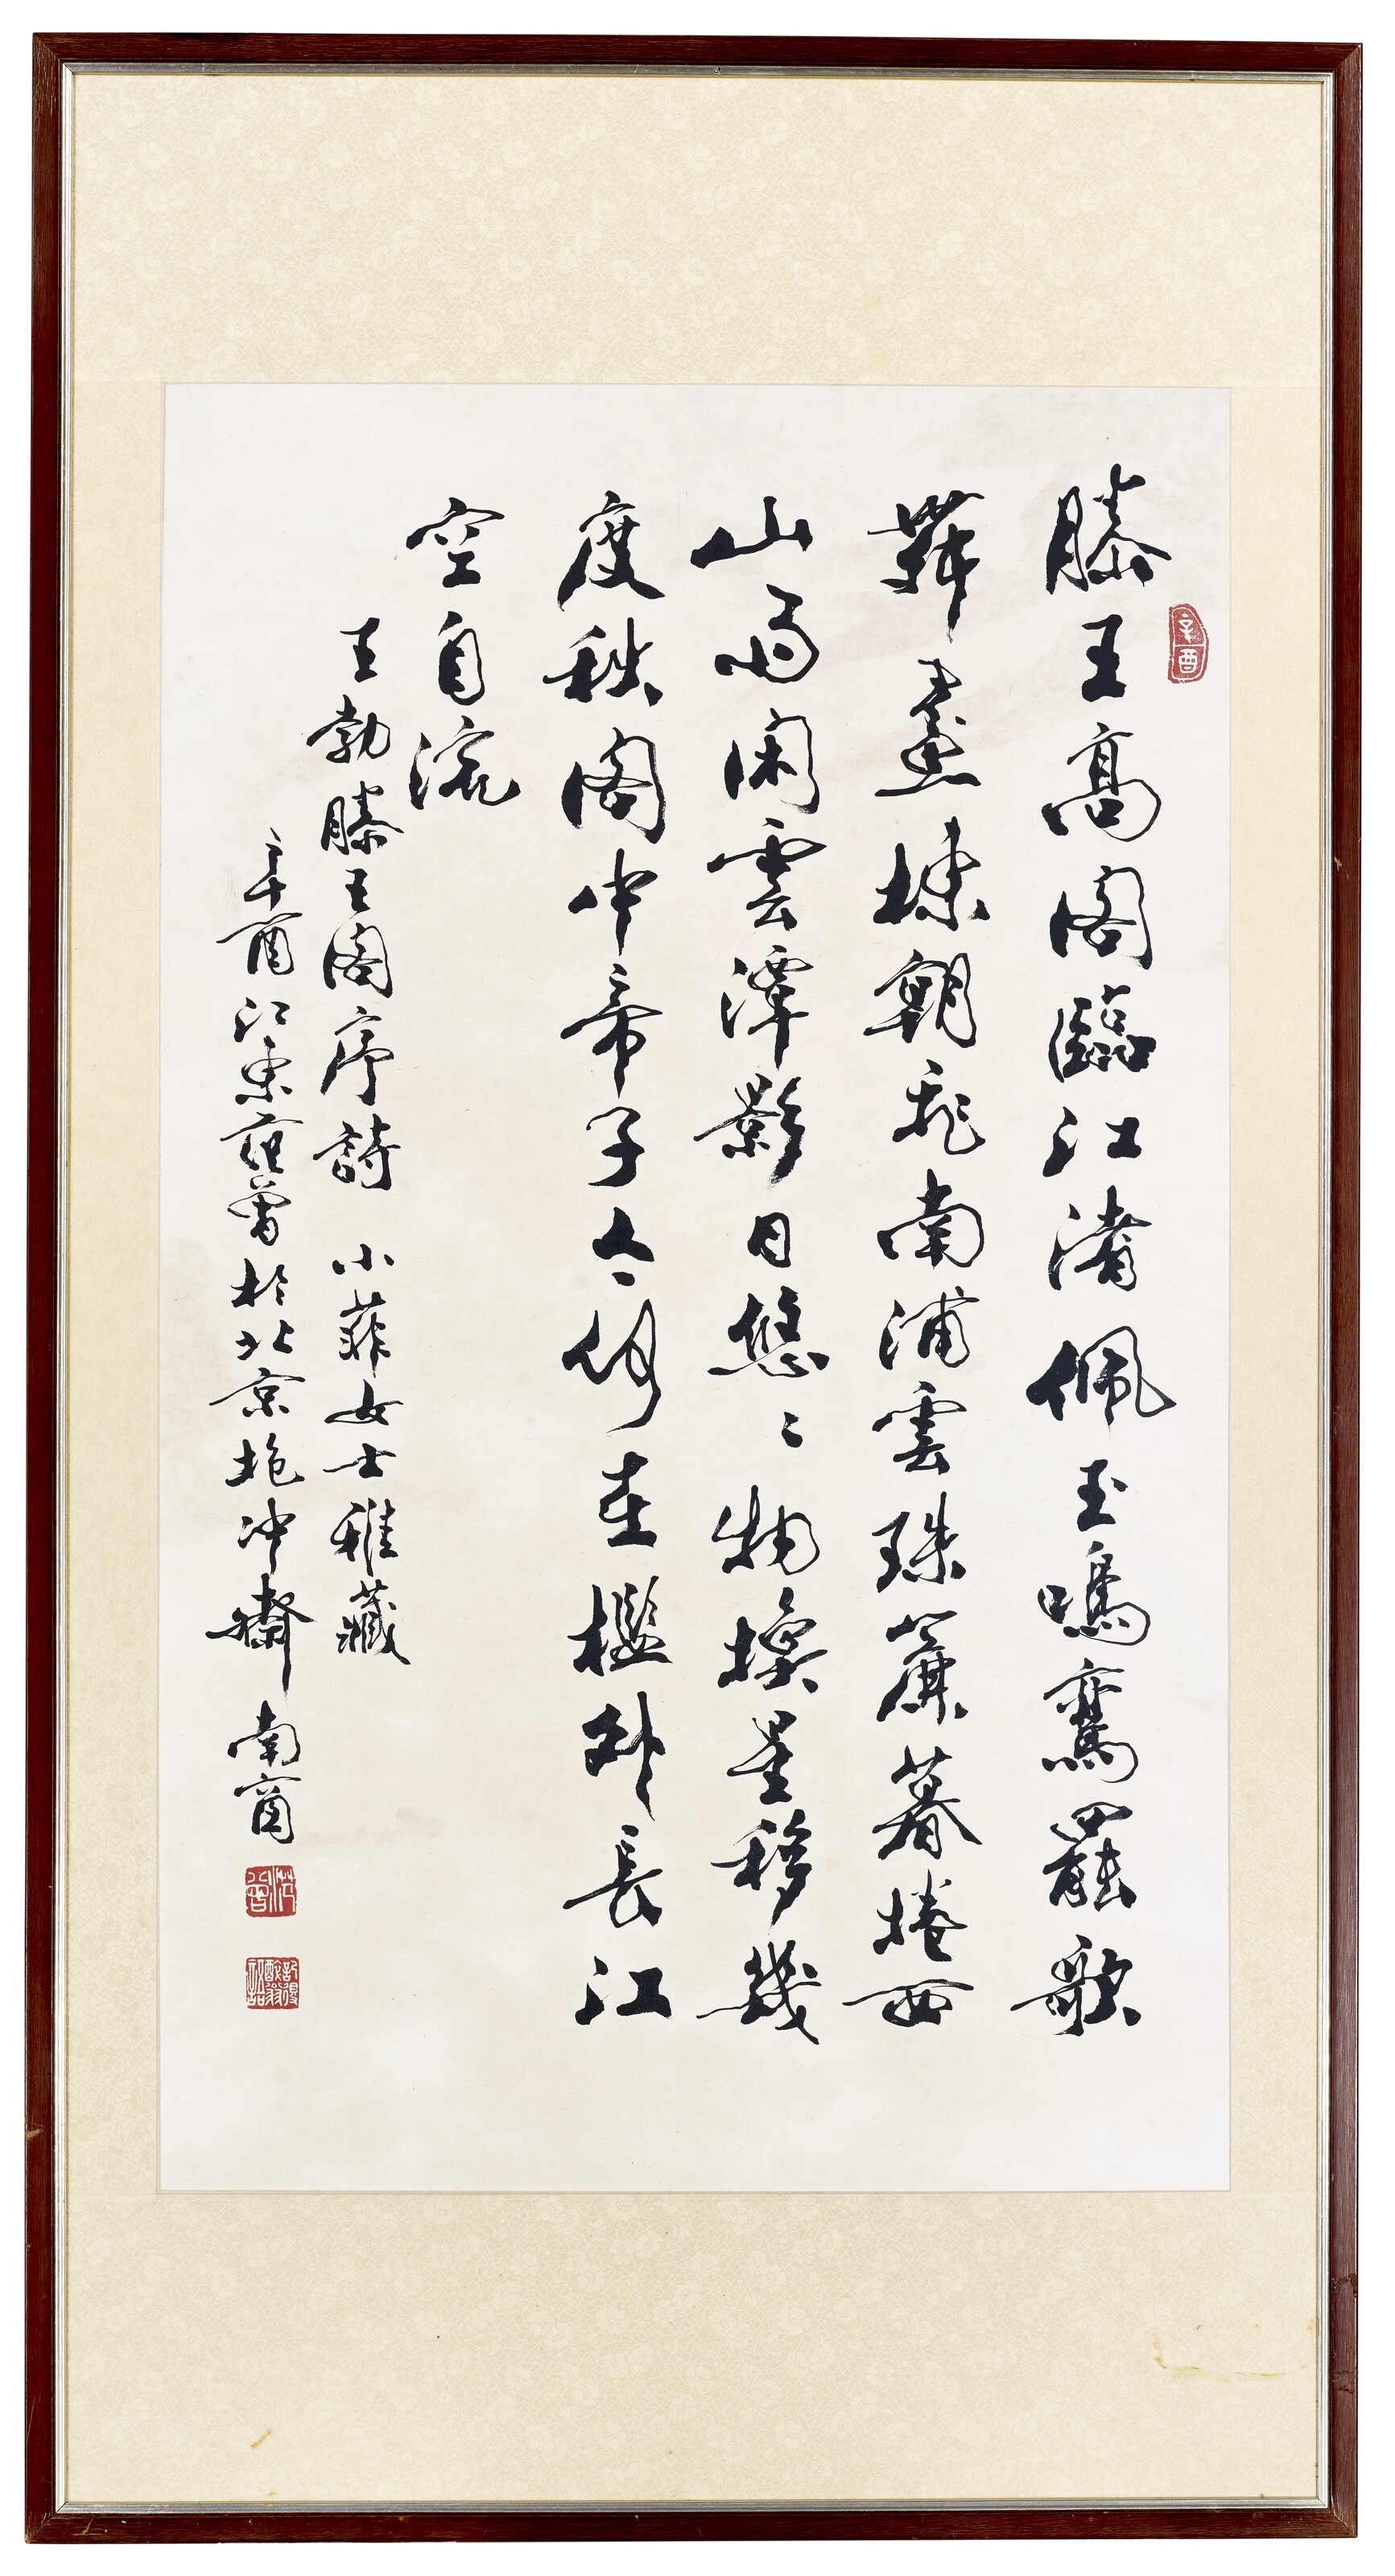 辛酉
滕王高閣臨江渚佩玉鳴鸞罷歌
舞畫棟朝飛南浦雲珠簾暮捲西
山雨閑雲潭影日悠〻物換星移幾
度秋閣中帝子今何在檻外長江
空自流
王勃滕王閣序詩 小菲女士雅藏
辛酉江東范曾於北京抱冲齋南窗
范曾